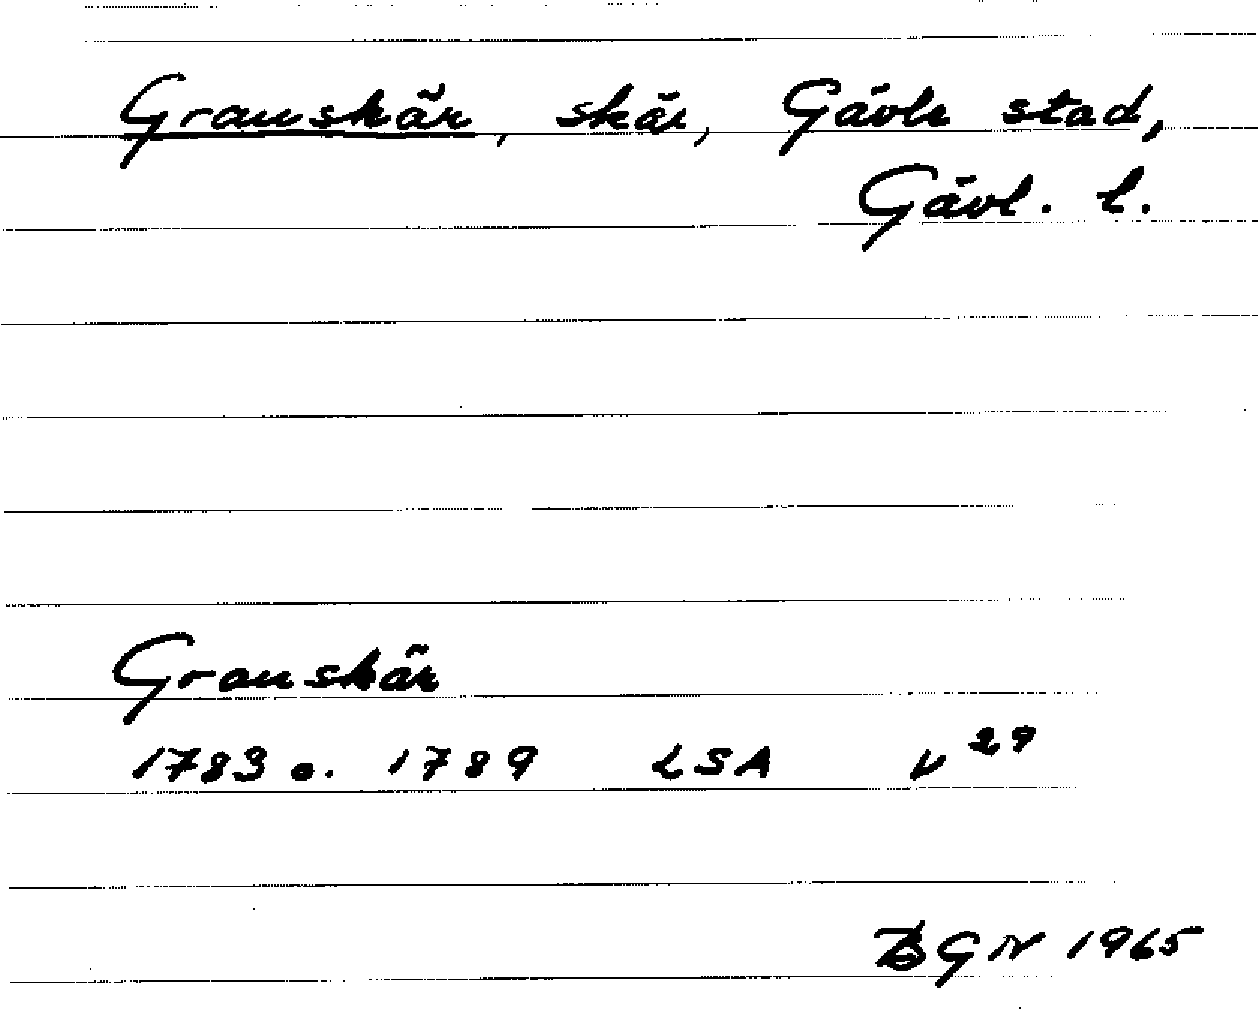 Granskär, skär, Gävle stad,
Gävl. l.
Granskär
1783 o. 1789 LSA v 29
BGN 1965